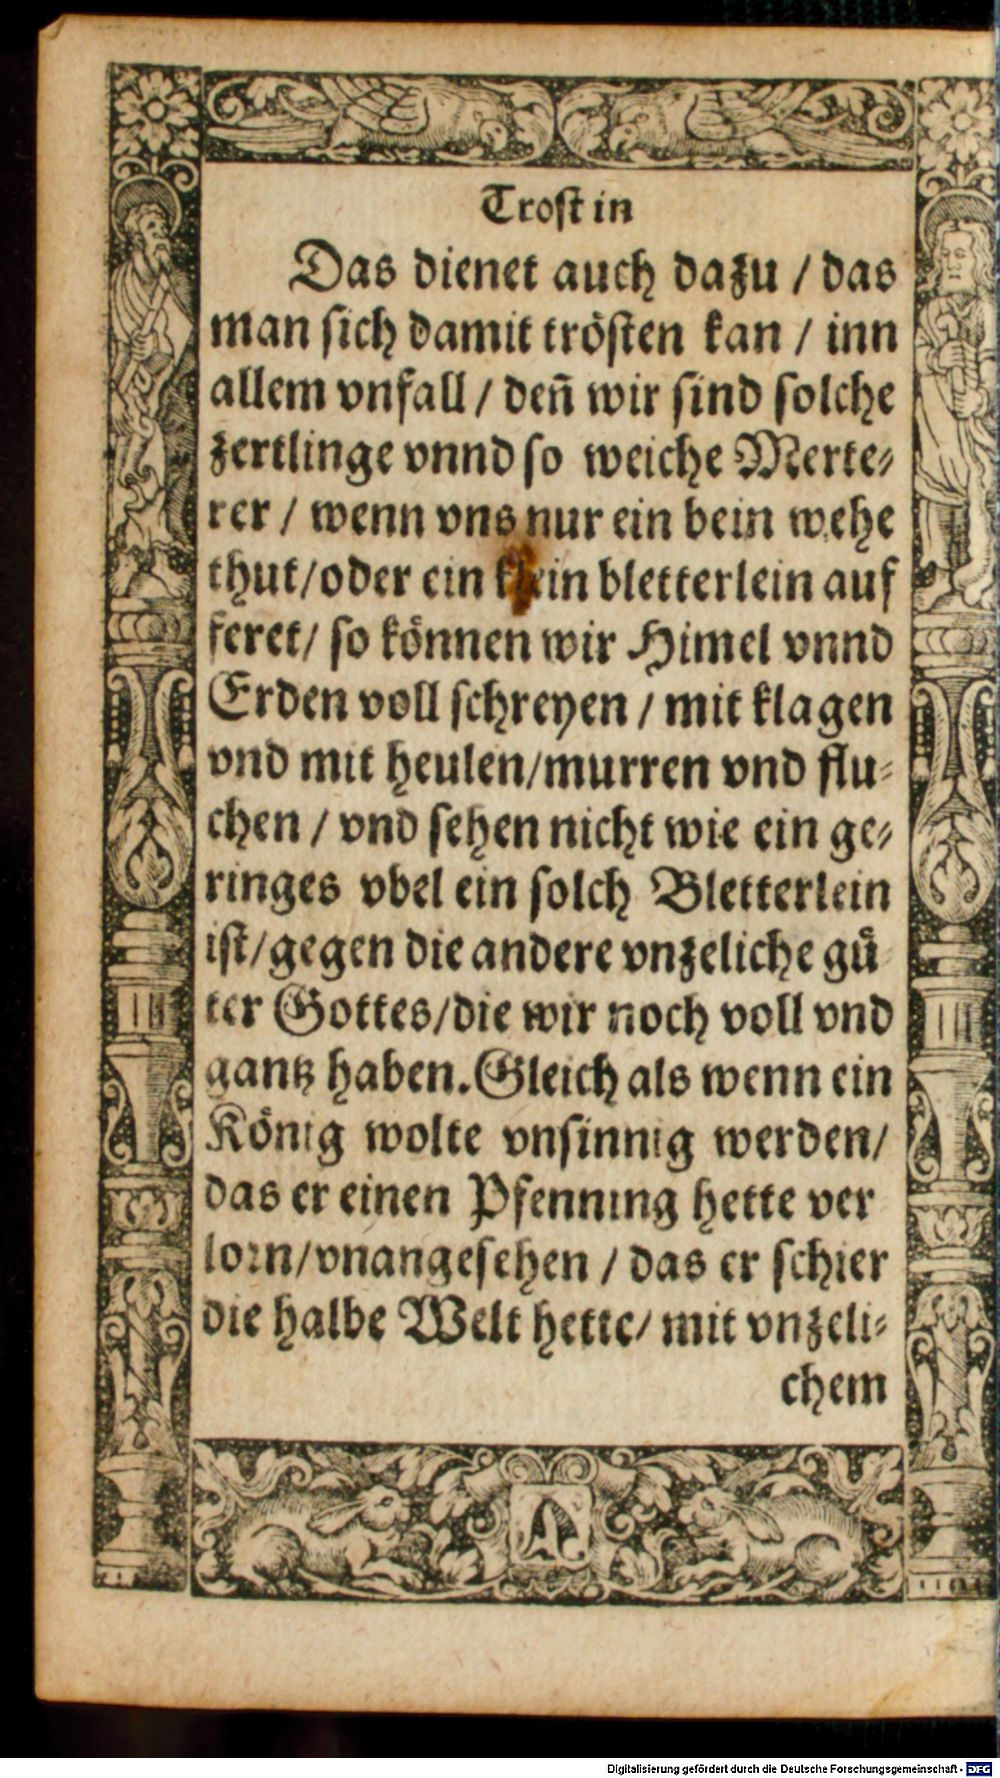 Trost in
Das dienet auch dazu / das
man sich damit trösten kan / inn
allem vnfall / deñ wir sind solche
zertlinge vnnd so weiche Merte⸗
rer / wenn vns nur ein bein wehe
thut/oder ein klein bletterlein auf
feret/ so können wir Himel vnnd
Erden voll schreyen / mit klagen
vnd mit heulen/murren vnd flu⸗
chen / vnd sehen nicht wie ein ge⸗
ringes vbel ein solch Bletterlein
ist/gegen die andere vnzeliche guͤ
ter Gottes/die wir noch voll vnd
gantz haben. Gleich als wenn ein
König wolte vnsinnig werden/
das er einen Pfenning hette ver
lorn/vnangesehen / das er schier
die halbe Welt hette/ mit vnzeli⸗
chem
Digitalisierung gefördert durch die Deutsche Forschungsgemeinschaft - DFG